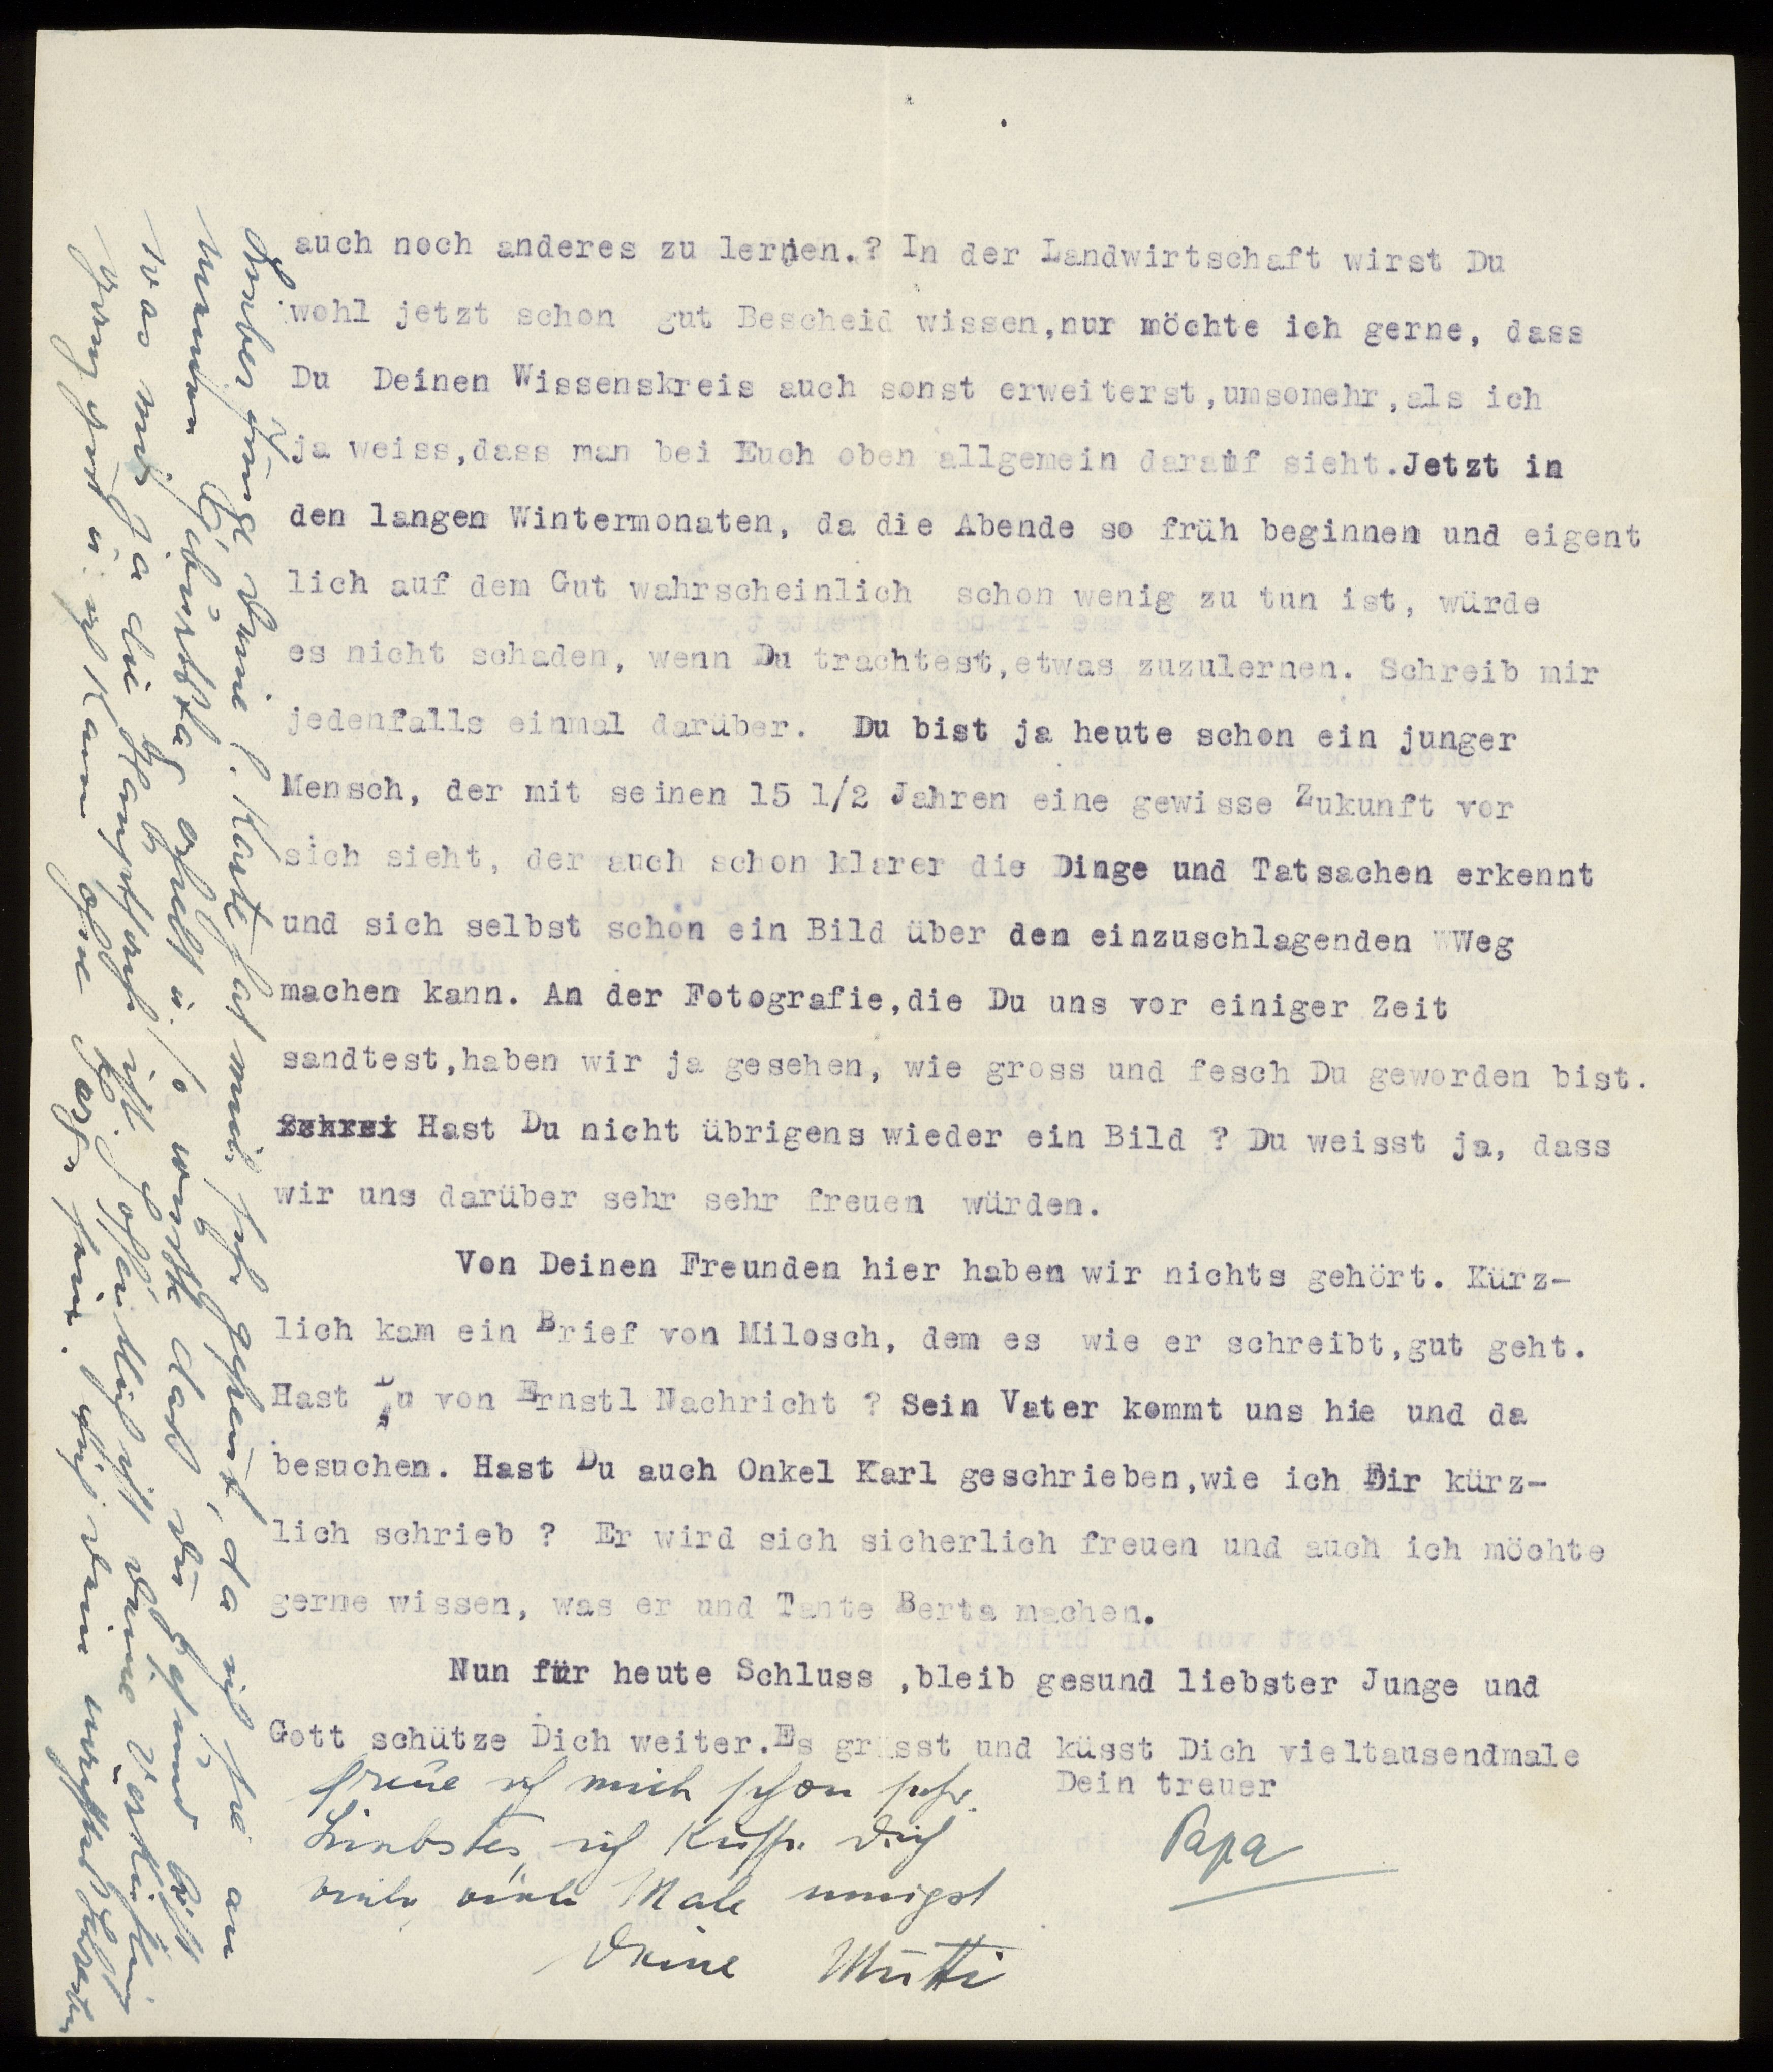 auch noch anderes zu lernen.? In der Landwirtschaft wirst Du
wohl jetzt schon gut Bescheid wissen,nur möchte ich gerne, dass
Du Deinen Wissenskreis auch sonst erweiterst,umsomehr,als ich
ja weiss,dass man bei Euch oben allgemein darauf sieht.Jetzt in
den langen Wintermonaten, da die Abende so früh beginnen und eigent
lich auf dem Gut wahrscheinlich schon wenig zu tun ist, würde
es nicht schaden, wenn Du trachtest,etwas zuzulernen. Schreib mir
jedenfalls einmal darüber. Du bist ja heute schon ein junger
Mensch, der mit seinen 15 1/2 Jahren eine gewisse Zukunft vor
sich sieht, der auch schon klarer die Dinge und Tatsachen erkennt
und sich selbst schon ein Bild über den einzuschlagenden WWeg
machen kann. An der Fotografie,die Du uns vor einiger Zeit
sandtest,haben wir ja gesehen, wie gross und fesch Du geworden bist.
Hast Du nicht übrigens wieder ein Bild ? Du weisst ja, dass
wir uns darüber sehr sehr freuen würden.
Von Deinen Freunden hier haben wir nichts gehört. Kürz-
lich kam ein Brief von Milosch, dem es wie er schreibt,gut geht.
Hast Du von Ernstl Nachricht ? Sein Vater kommt uns hie und da
besuchen. Hast Du auch Onkel Karl geschrieben,wie ich Dir kürz-
lich schrieb ? Er wird sich sicherlich freuen und auch ich möchte
gerne wissen, was er und Tante Berta machen.
Nun für heute Schluss ,bleib gesund liebster Junge und
Gott schütze Dich weiter.Es grüsst und küsst Dich vieltausendmale
Dein treuer
Papa
Lieber Junge deine l. Karte hat mich sehr gefreut, da ich sie an
meinem Geburtstag erhielt u. so wusste dass du gesund bist
was mir ja die Hauptsache ist. Hoffentlich ist deine Verkühlung
ganz gut u. ich kann ohne Sorge sein. Auf dein
freue ich mich schon sehr.
Liebstes, ich küsse dich
viele, viele Male innigst
Deine Mutti